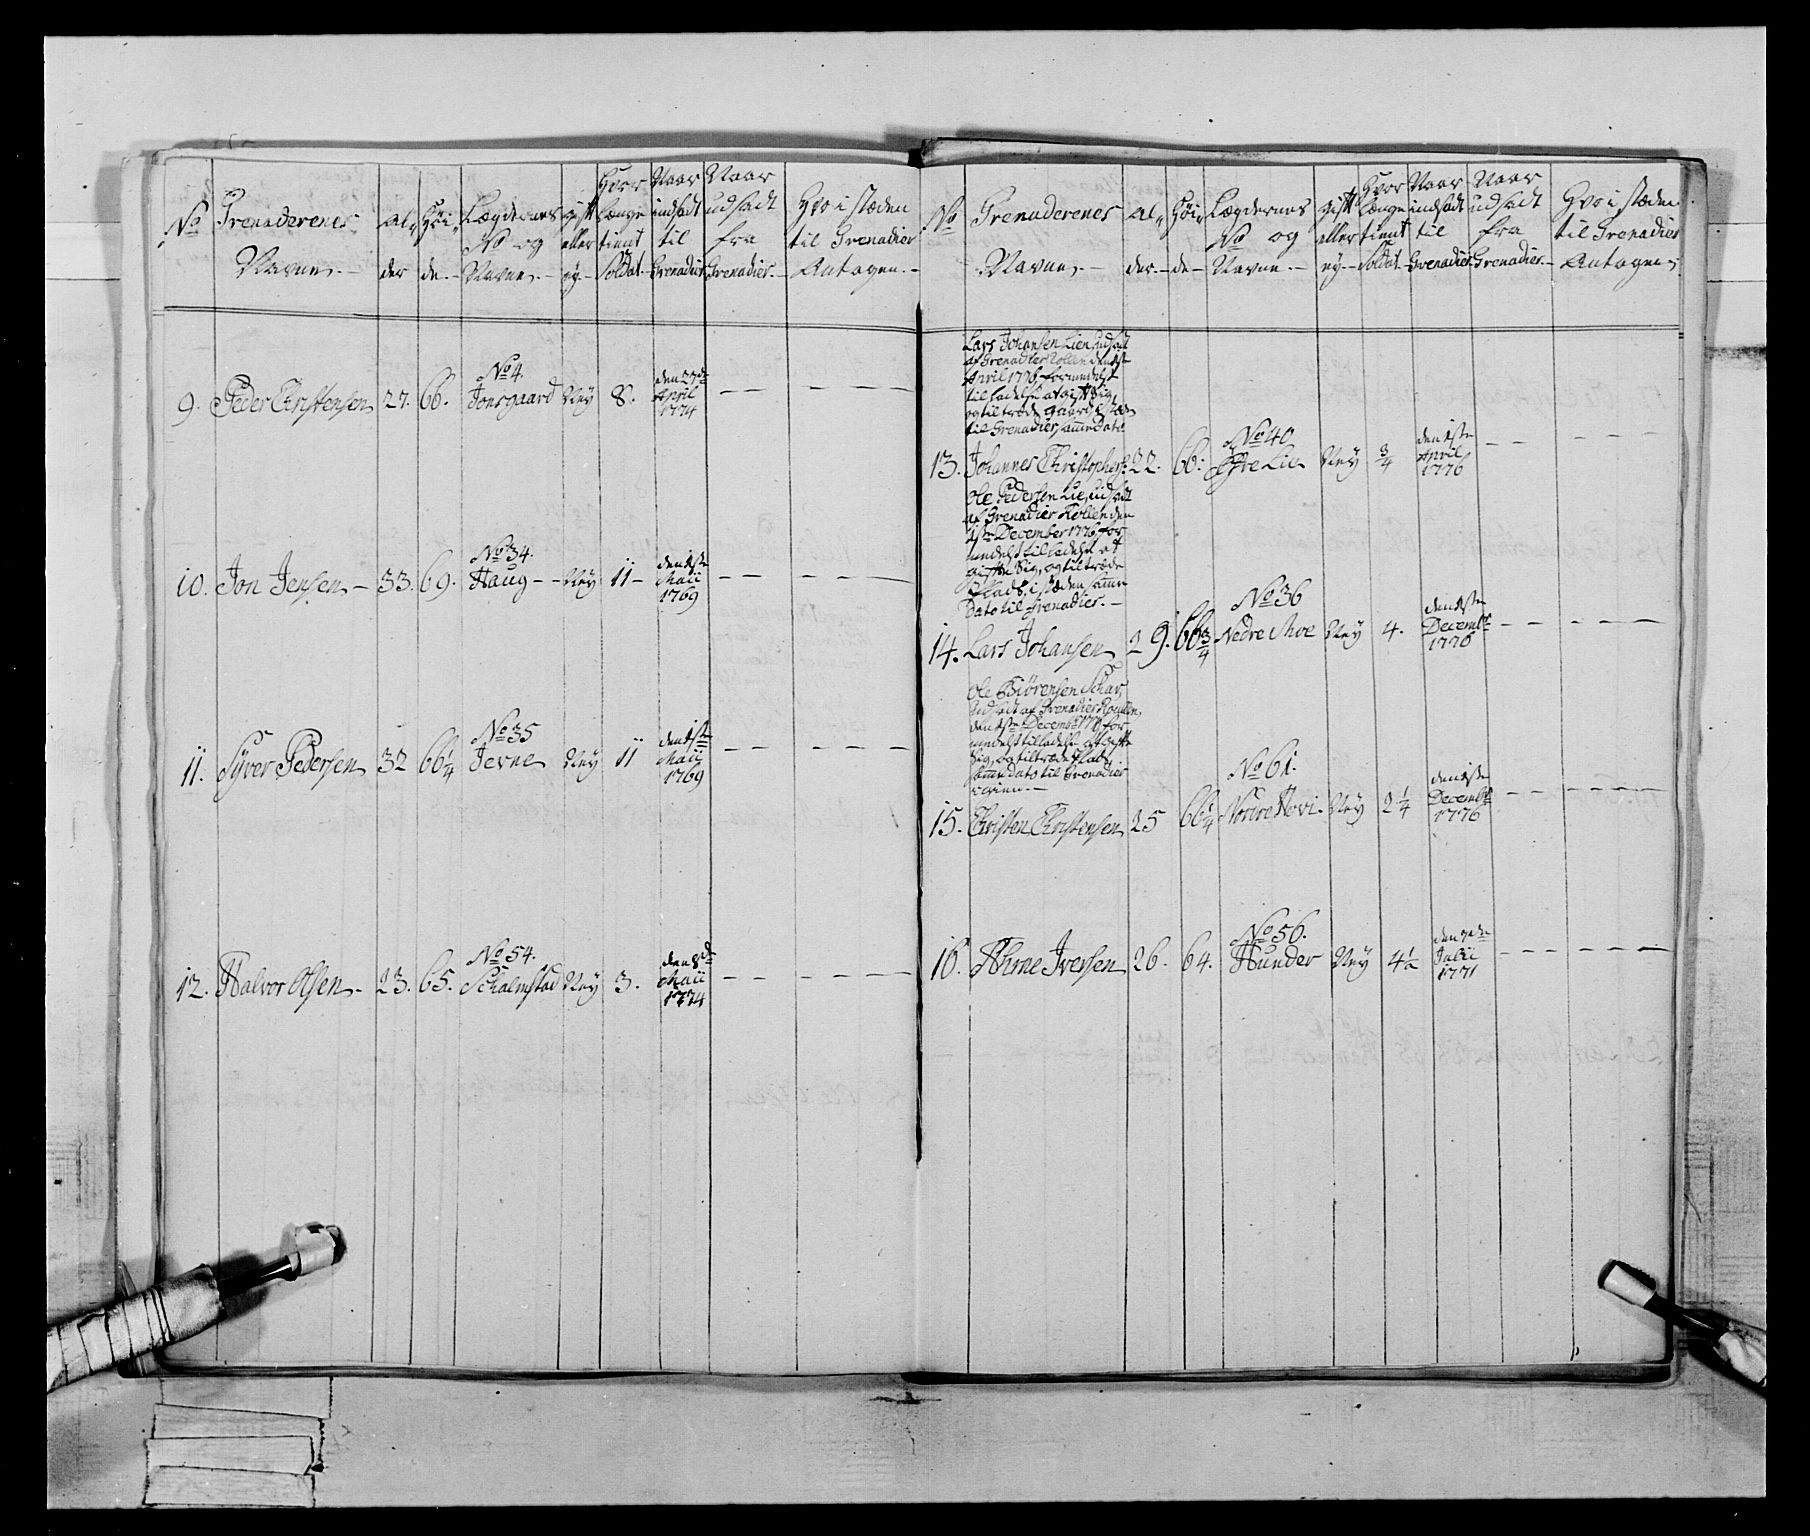 No Grenaderenes Navne. Al- der Høi- de. Lægdernes No og Navne. gift eller ey. Hvor længe tient Soldat Naar indsadt til Grenadier Naar udsadt fra Grenadier. Hvo i stæden til Grenadier Antagen.
9. Peder Christensen 27. 66. No 4. Jonsgaard Ney 8. den 27de April 1774 — —
10. Jon Jensen 33. 69. No 34. Haug Ney 11 den 1ste Maii 1769 — —
11. Syver Pedersen 32 66 1/4 No 35 Jevne Ney 11 den 1ste Maii 1769 — —
12. Halvor Olsen 23. 65. No 54. Schalmstad Ney 3. den 8de Maii 1774 — —
No Grenaderenes Navne. Al- der. Høi- de Lægdernes No og Navne gift eller ey Hvor længe tient Soldat Naar indsadt til Grenadier. Naar udsadt fra Grenadier. Hvo i stæden til Grenadier Antagen
Lars Johansen Lien, udsadt
af Grenadier Rollen den 1ste
April 1776, formedelst
tilladelse at gifte Sig,
og tiltræde gaard, i stæden
til Grenadier, samme Dato
13. Johannes Christophers: 22. 66. No 40 Øfre Lie Ney 3/4 den 1ste April 1776 — —
Ole Pedersen Lie, udsadt
af Grenadier Rollen den
1ste December 1776, for
medelst tilladelse at
gifte Sig, og tiltræde
Plads, i stæden samme
Dato til Grenadier. —
14. Lars Johansen 29. 66 3/4 No 36 Nedre Moe Ney 4. den 1ste Decembr 1776 — —
Ole Biørensen Schar,
udsadt af Grenadier Roullen,
den 1ste Decembr 1776 for
medelst tilladelse at gifte
Sig, og tiltræde Plads,
samme Dato til Grenadier
igien. —
15. Christen Christensen 25 66 1/4 No 61. Nordre Hovi Ney 2 1/4 den 1ste Decembr 1776 — —
16. Ahrne Iversen 26. 64. No 56. Hunder Ney 4 1/2 den 7de Julii 1771 — —